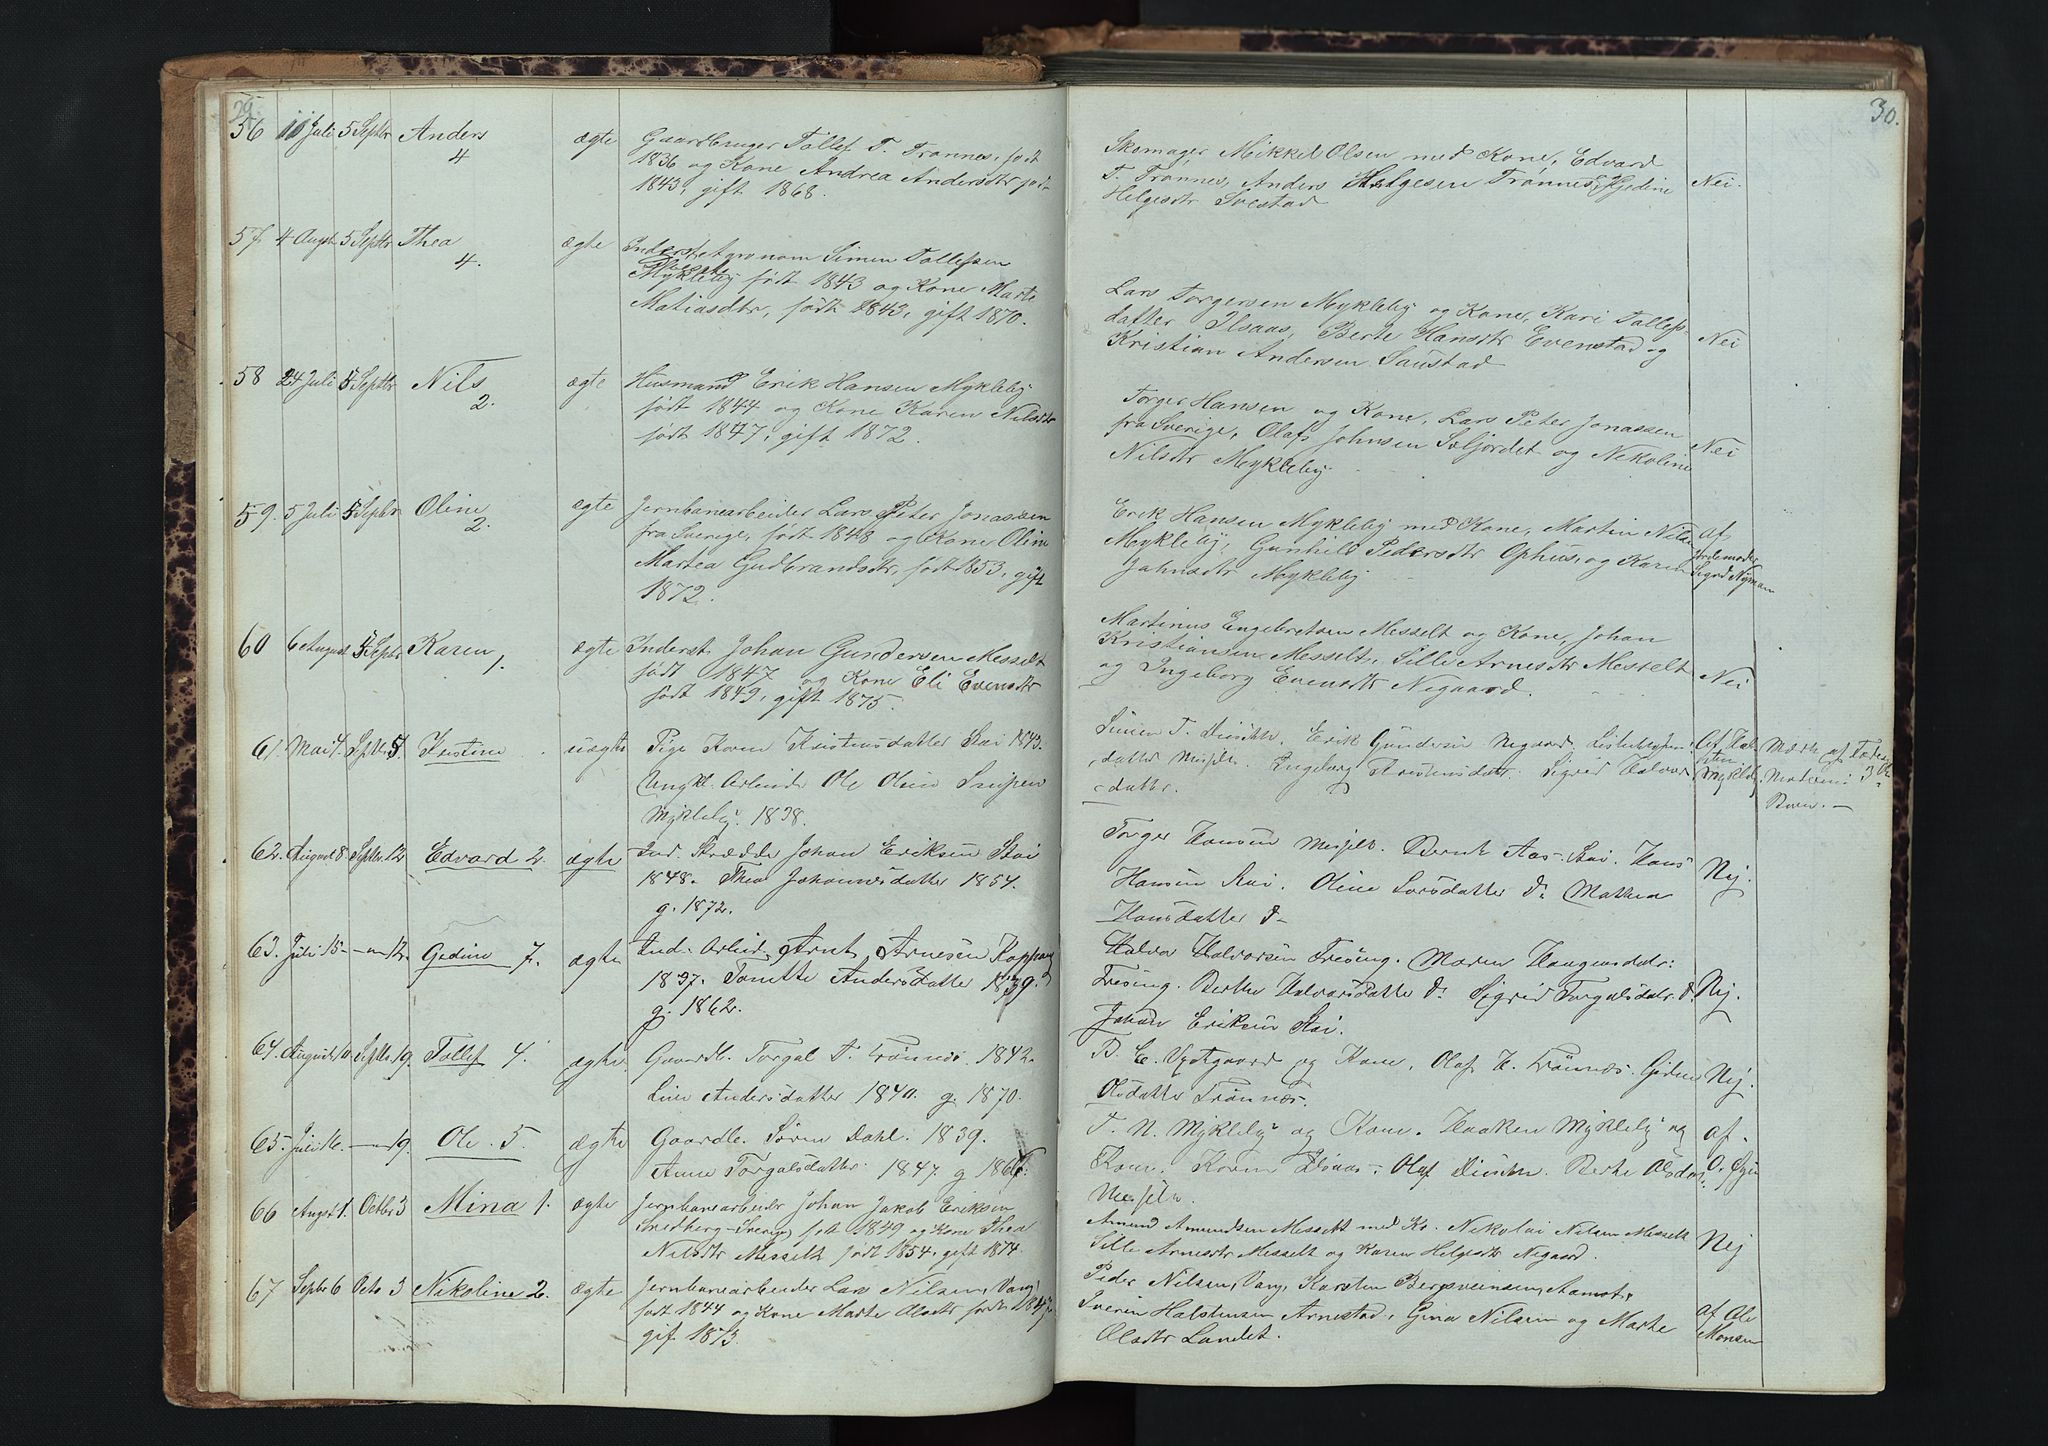 29
56 11 Juli 5 Septbr Anders ægte Gaardbruger Tollef T. Trønnes, født
4 1836 og Kone Andrea Andersdtr født
1843, gift 1868.
57 4 Augst 5 Septbr Thea ægte Inderst Agronom Simen Tollefsen
4. Mykleby født 1843 og Kone Marte
Matiasdtr, født 1843, gift 1870.
58 24 Juli 5 Septbr Nils ægte Husmand Erik Hansen Mykleby
2. født 1844 og Kone Karen Nilsdtr
født 1847, gift 1872.
59. 5 Juli 5 Septbr Oline ægte Jernbanearbeider Lars Peter Jonassen
2. fra Sverige, født 1848 og Kone Oline
Martea Gudbrandsdtr, født 1853, gift
1872.
60 6 August 5 Septbr Karen 1. ægte Inderst Johan Gundersen Messelt
født 1847 og Kone Eli Evensdtr
født 1849, gift 1875.
61. Mai 4. Septbr 5. Justine uægte Pige Karen Kristensdatter Stai 1843.
Ungkl. Arbeider Ole Olsen
Mykleby. 1838.
62. August 8. Septbr. 12 Edvard 2. ægte Ind. Skrædder Johan Eriksen Stai
1848. Thea Johannesdatter 1854.
g. 1872.
63. Juli 15 — " — 12. Gedine 7. ægte Ind. Arbeid. Arnt Arnesen Koppang
1837. Tonette Andersdatter 1839.
g. 1862.
64. August 10. Septbr. 19. Tollef 4. ægte Gaardb. Torgal T. Trønnes 1842.
Line Andersdatter 1840. g. 1870.
65. Juli 16. — " — 19. Ole. 5. ægte Gaardb. Søren Dahl. 1839.
Anne Torgalsdatter 1847. g 1866.
66 Augst 1. Octbr 3 Mina 1. ægte Jernbanearbeider Johan Jakob Eriksen
Snedberg, Sverige, født 1849 og Kone Thea
Nilsdtr Messelt født 1854, gift 1874.
67 Septbr 6 Octo 3 Nikoline 2. ægte Jernbanearbeider Lars Nilsen, Vang,
født 1844 og Kone Marte Olsdtr født 1847,
gif 1873.
30.
Skomager Mikkel Olsen med Kone, Edvard
T. Trønnes, Anders Helgesen Trønnes, Gjedine Nei.
Helgesdtr Svestad
Lars Torgersen Mykleby og Kone, Kari Tollefs-
datter Ilsaas, Berte Hansdtr Evenstad og Nei
Kristian Andersen Saustad
Torger Hansen og Kone, Lars Peter Jonassen
fra Sverige, Olaf Johnsen Søljordet og Nekoline Nei
Nilsdtr Mykleby
Erik Hansen Mykleby med Kone, Martin Nilsen af
Mykleby, Gunhild Pedersdtr Ophus, og Karen Jordemoder
Johnsdtr Mykleby Sigrid Nyman
Martinus Engebretsen Messelt og Kone, Johan
Kristiansen Messelt, Sille Arnesdtr Messelt
og Ingeborg Evensdtr Negaard. Nei
Simen T. Erik Gundersen Negaard.
datter Messelt. Ingeborg Kristensdatter. Sigrid Halvors-
datter.
Af Mykleby
Mærke af Faderens
Moderens 3die
Barn. —
Torger Hansen Messelt. Bernt Aas Stai. Hans
Hansen Stai. Oline Larsdatter do Mathea Nej.
Hansdatter do
Halvor Halvorsen Tresing. Maren Haagensdatr:
Tresing. Berthe Halvorsdatter do Sigrid Torgalsdatr. do Nej.
Johan Eriksen Stai.
B. E. Vestgaard og Kone, Olaf H. Trønnes. Gidine Nej.
Olsdatter Trønnes.
T. N. Mykleby og Kone. Haaken Mykleby og af
Kone. Karen Olaf Berte Olsdatr.
Messelt.
Amund Amundsen Messelt med Ko. Nikolai Nilsen Messelt Nej
Sille Arnesdtr Messelt og Karen Helgesdtr Negaard.
Peder Nilsen, Vang, Karsten Bersveinsen, Aamot,
Iverin Halstensen Arnestad, Gina Nilsen og Marte af Ole
Olsdtr Landet. Monsen